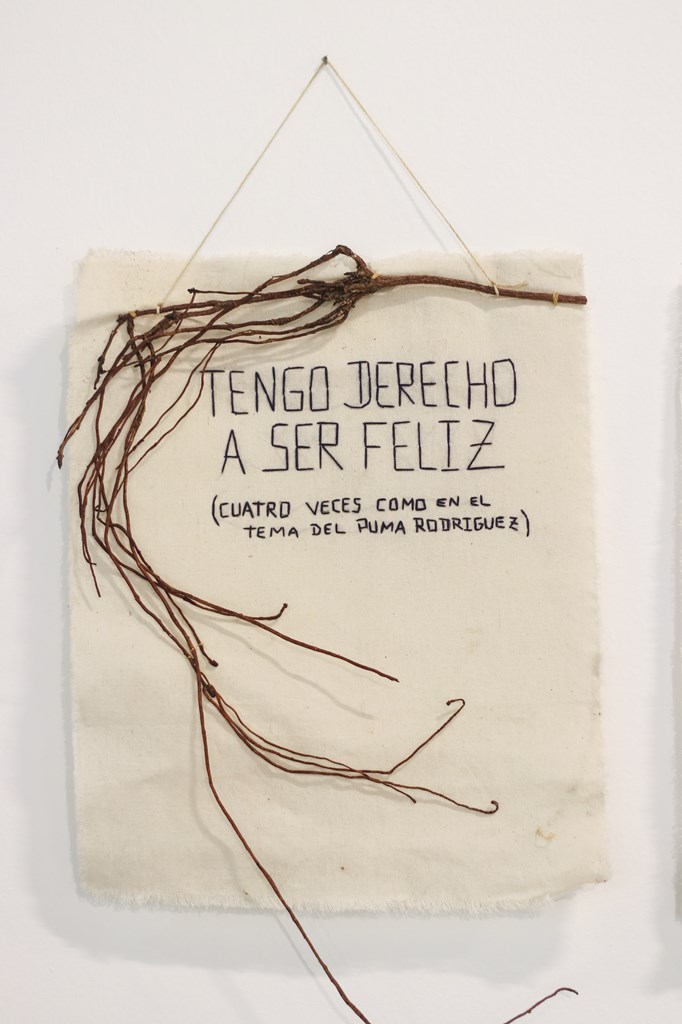 TENGO DERECHO
A SER FELIZ
(CUATRO VECES COMO EN EL
TEMA DEL PUMA RODRIGUEZ)